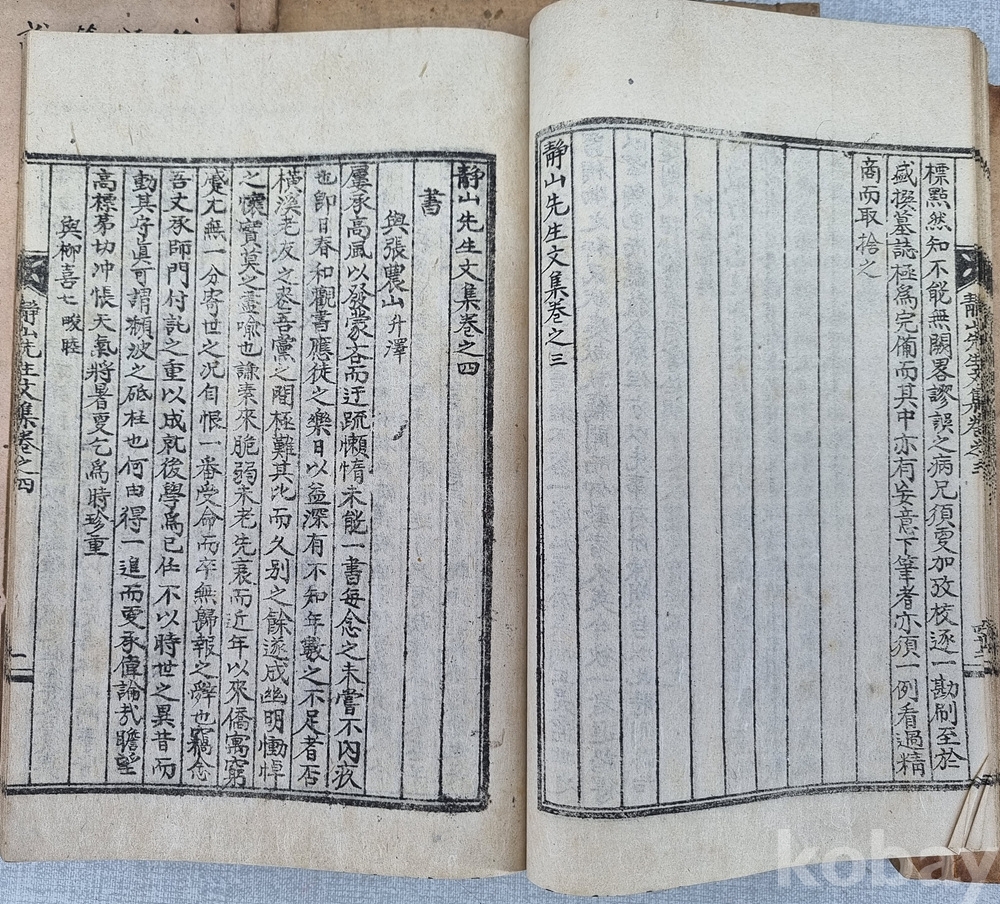 標黙然知不能無闕畧謬誤之病兄須更加攷校逐一勘刷至於
盛撰墓誌極爲完備而其中亦有妄意下筆者亦須一例看過精
商而取捨之
靜山先生文集卷之三
靜山先生文集卷之三
靜山先生文集卷之四
書
與張農山 升澤
屢承高風以發蒙吝而迂疏懶惰未能一書每念之未嘗不内疚
也卽日春和觀書應徒之樂日以益深有不知年數之不足者否
橫溪老友之喪吾黨之聞極難其比而久別之餘遂成幽明慟悼
之懷實莫之盡喩也謙素來脆弱未老先衰而近年以來僑寓窮
蹙尤無一分寄世之况自恨一番受命而卒無歸報之辭也竊念
吾丈承師門付託之重以成就後學爲己任不以時世之異昔而
動其守眞可謂頽波之砥柱也何由得一進而更承偉論哉瞻望
高標第切冲悵天氣將暑更乞爲時珍重
與柳喜七 畯睦
靜山先生文集卷之四
一
kobay